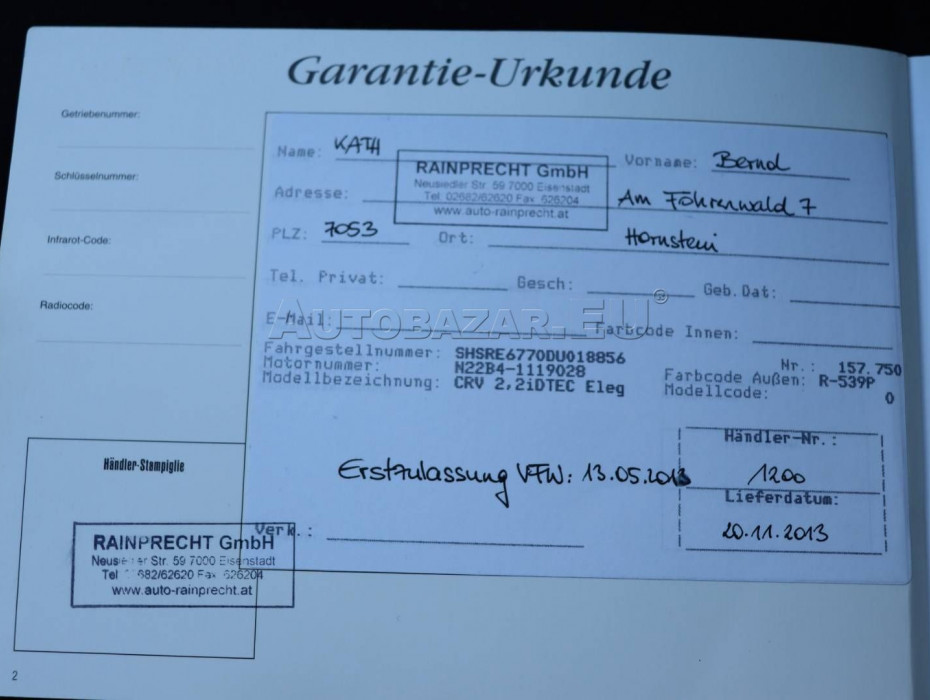 Garantie-Urkunde
Getriebenummer:
Schlüsselnummer:
Infrarot-Code:
Radiocode:
Name: KATH Vorname: Bernd
RAINPRECHT GmbH
Neusiedler Str. 59 7000 Eisenstadt
Tel. 02682/62620 Fax 626204
www.auto-rainprecht.at
Adresse: Am Föhrenwald 7
PLZ: 7053 Ort: Hornstein
Tel. Privat: Gesch: Geb.Dat:
AUTOBAZAR.EU®
E-Mail: Farbcode Innen:
Fahrgestellnummer: SHSRE6770DU018856 Nr.: 157.750
Motornummer: N22B4-1119028 Farbcode Außen: R-539P
Modellbezeichnung: CRV 2,2iDTEC Eleg Modellcode: 0
Händler-Nr.:
1200
Erstzulassung VFW: 13.05.2013
Lieferdatum:
20.11.2013
Verk.:
Händler-Stampiglie
RAINPRECHT GmbH
Neusiedler Str. 59 7000 Eisenstadt
Tel 02682/62620 Fax 626204
www.auto-rainprecht.at
2